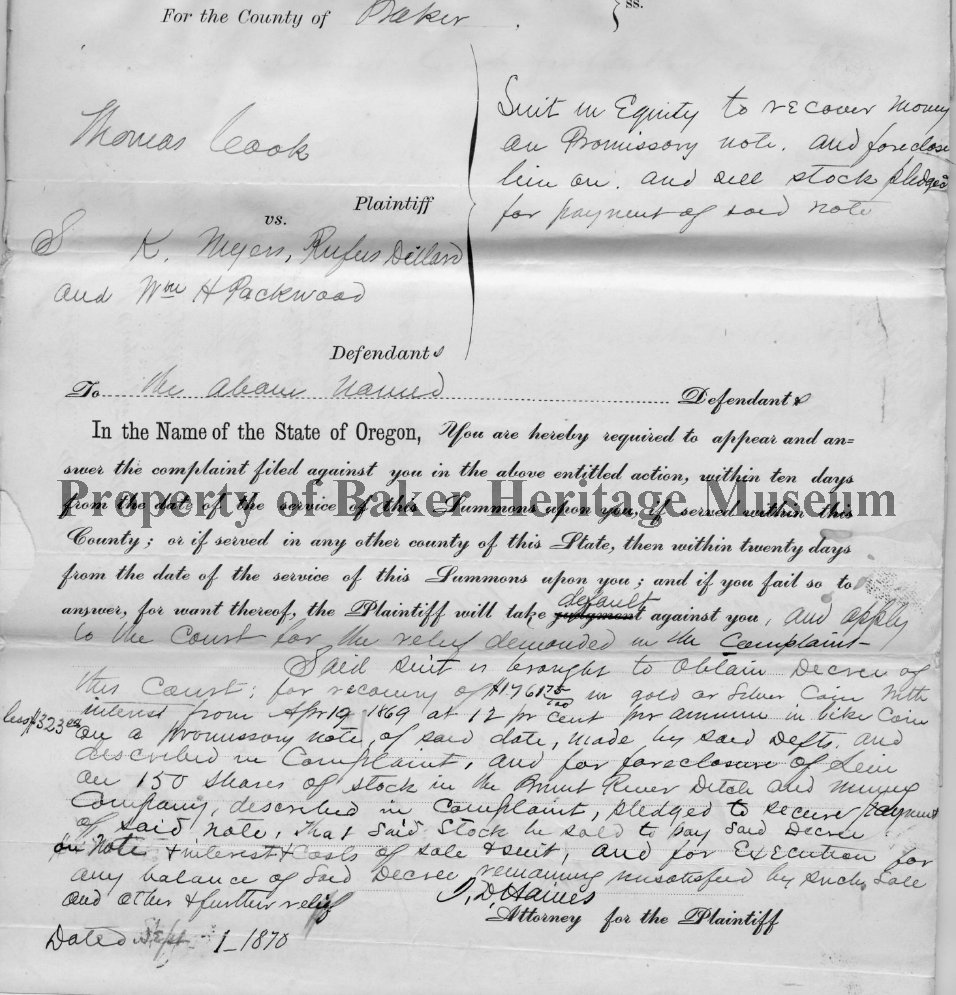 For the County of Baker ss.
Suit in Equity to recover money
on Promissory note. and foreclose
lien on. and sell stock pledged
for payment of said note
Thomas Cook
Plaintiff
vs.
S K. Myers, Rufus Dillard
and Wm H Packwood
Defendants
To the above named Defendants
In the Name of the State of Oregon, You are hereby required to appear and an=
swer the complaint filed against you in the above entitled action, within ten days
from the date of the service of this Summons upon you, if served within this
Property of Baker Heritage Museum
County; or if served in any other county of this State, then within twenty days
from the date of the service of this Summons upon you; and if you fail so to
default
answer, for want thereof, the Plaintiff will take judgment against you, and apply
to the Court for the relief demanded in the Complaint-
Said suit is brought to obtain Decree of
this Court; for recovery of $1761 75/100 in gold or Silver Coin with
interest from Apr 19 1869 at 12 pr cent pr annum in like Coin
less $323
on a promissory note, of said date, made by said Defts. and
described in Complaint, and for foreclosure of Lein
on 150 shares of stock in the Burnt River Ditch and mining
Company, described in complaint, pledged to secure payment
of said note, That said Stock be sold to pay said Decree
on Note & interest & Costs of sale & suit, and for Execution for
any balance of said Decree remaining unsatisfied by such Sale
and other & further relief
I. D. Haines
Attorney for the Plaintiff
Dated Sept 1_ 1870